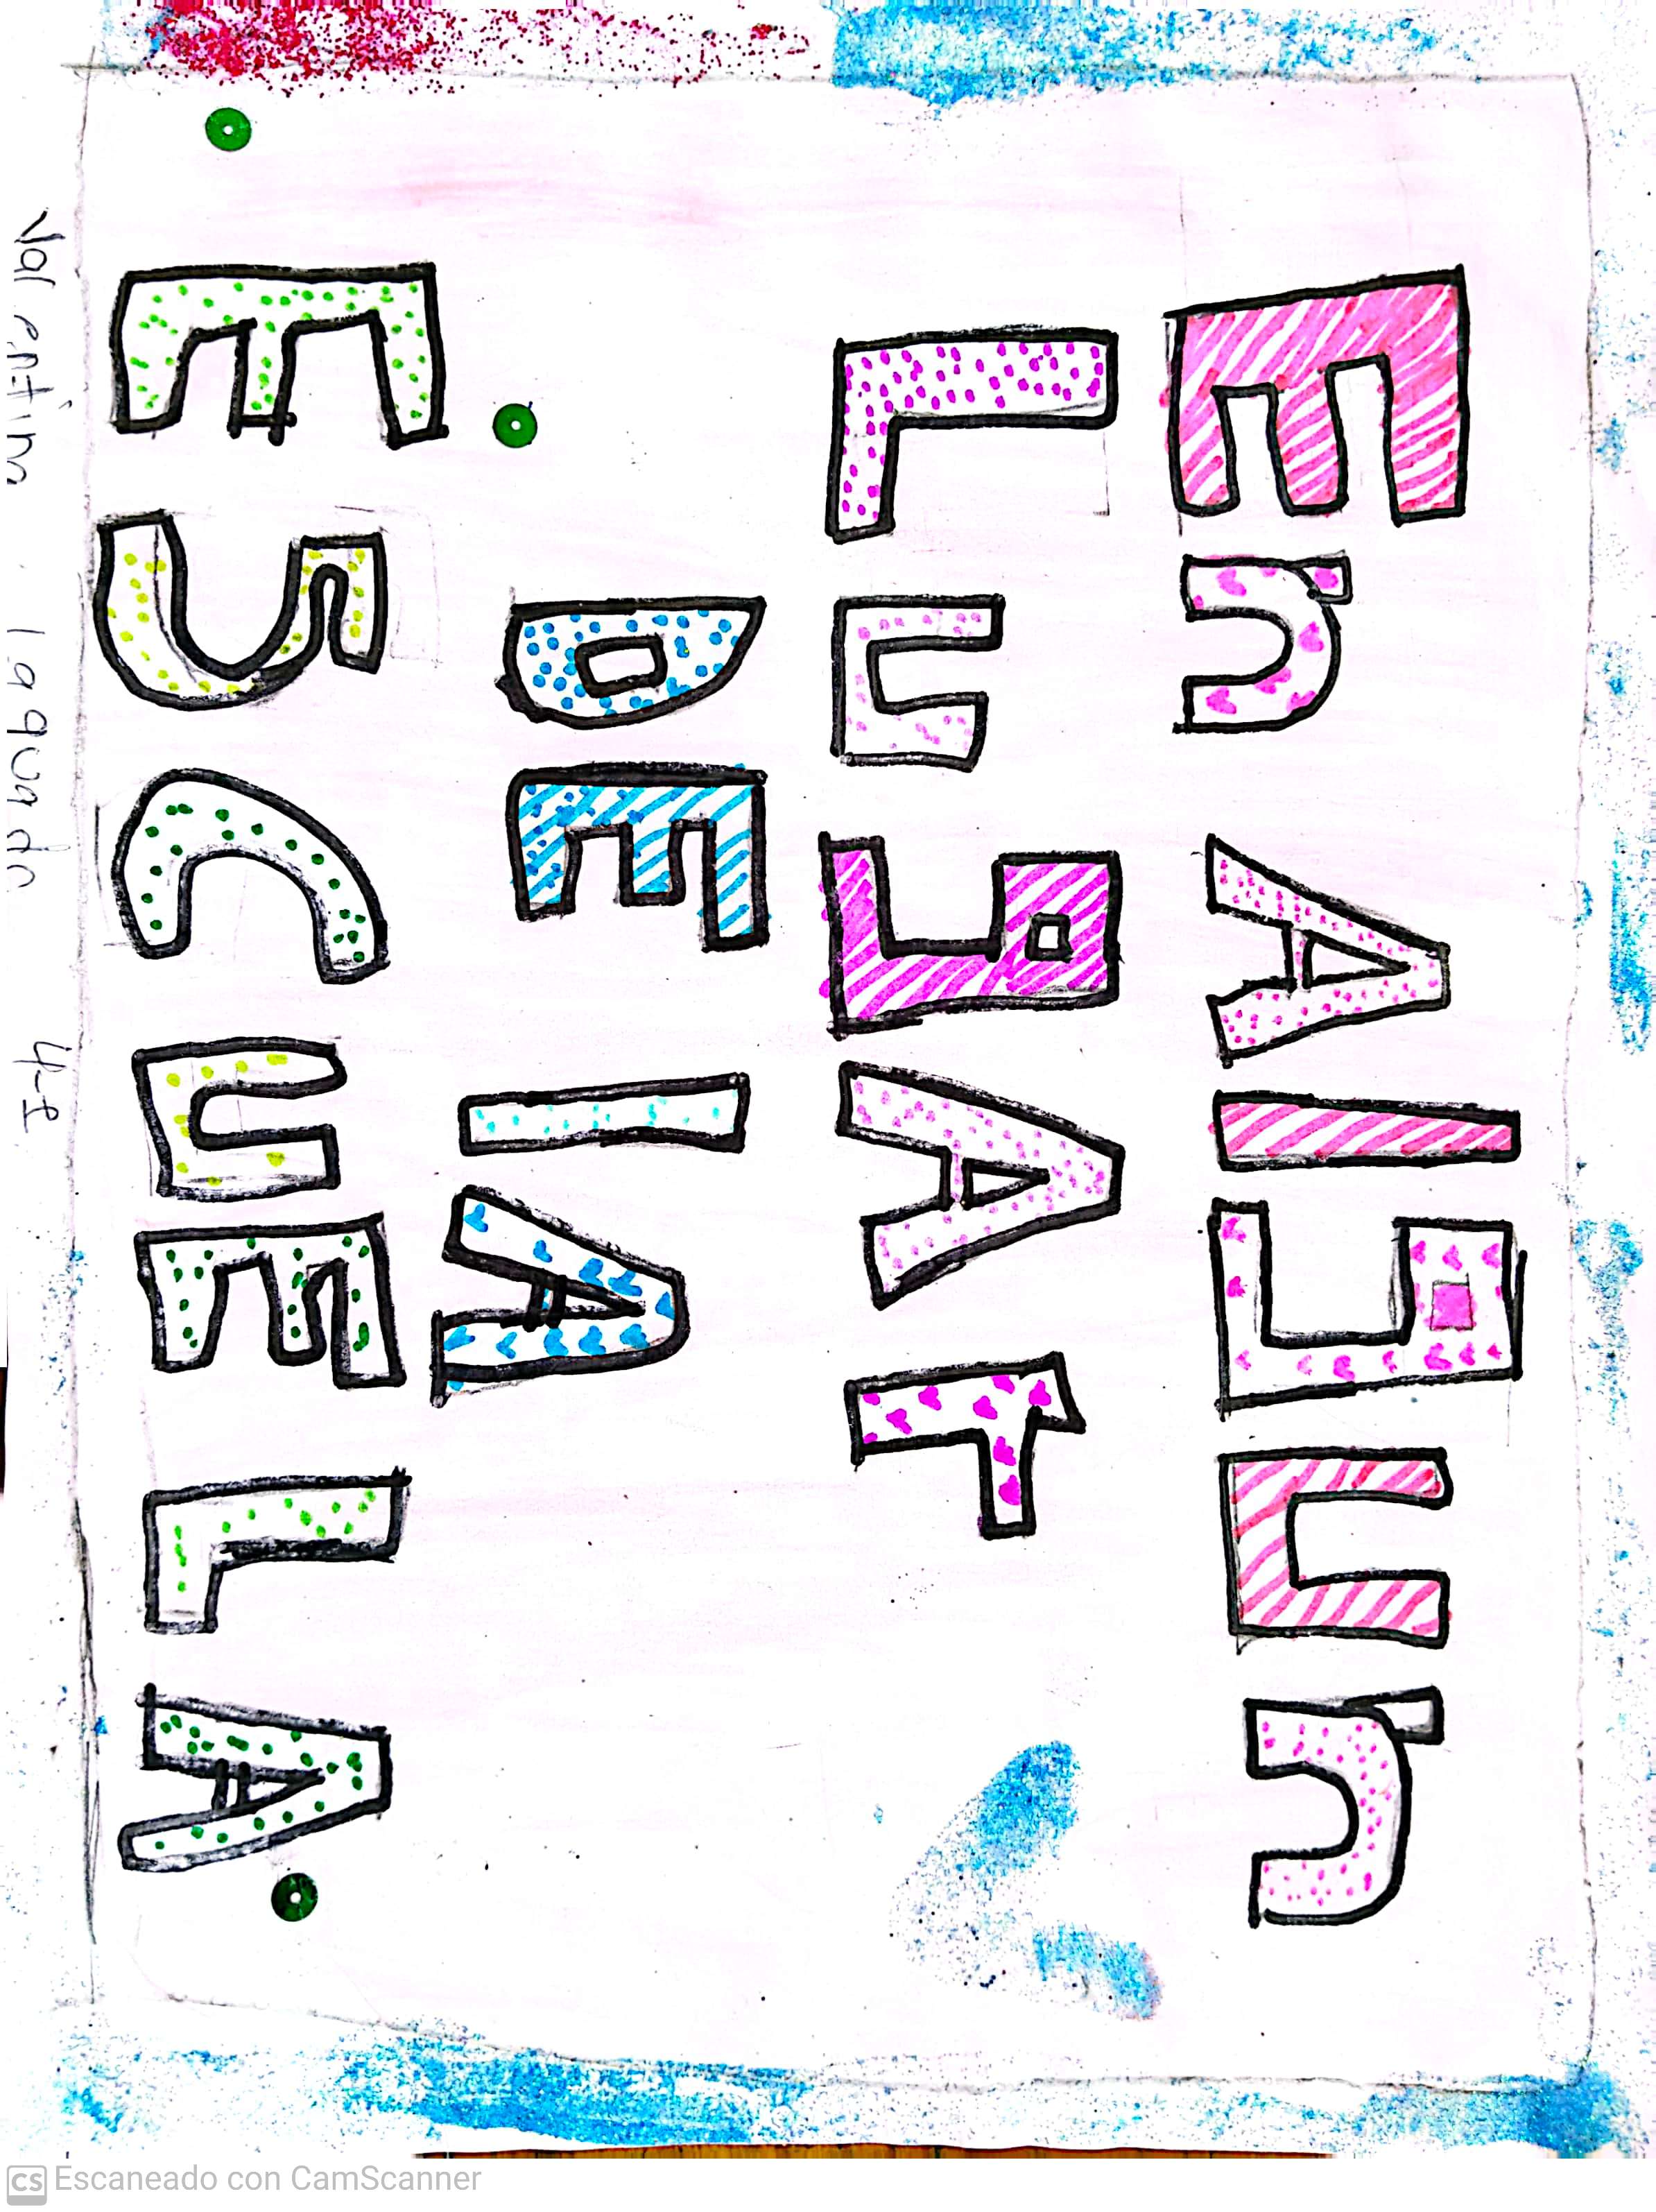 En AlgUn
LUgAr
DE lA
ESCUELA
Valentina laguado 4-2
CS Escaneado con CamScanner